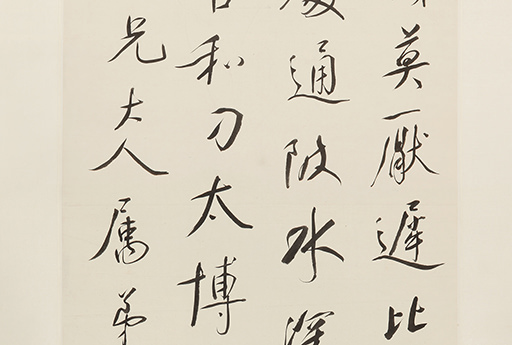 莫厭遲比
通陂水深
和刀太博
兄大人属弟